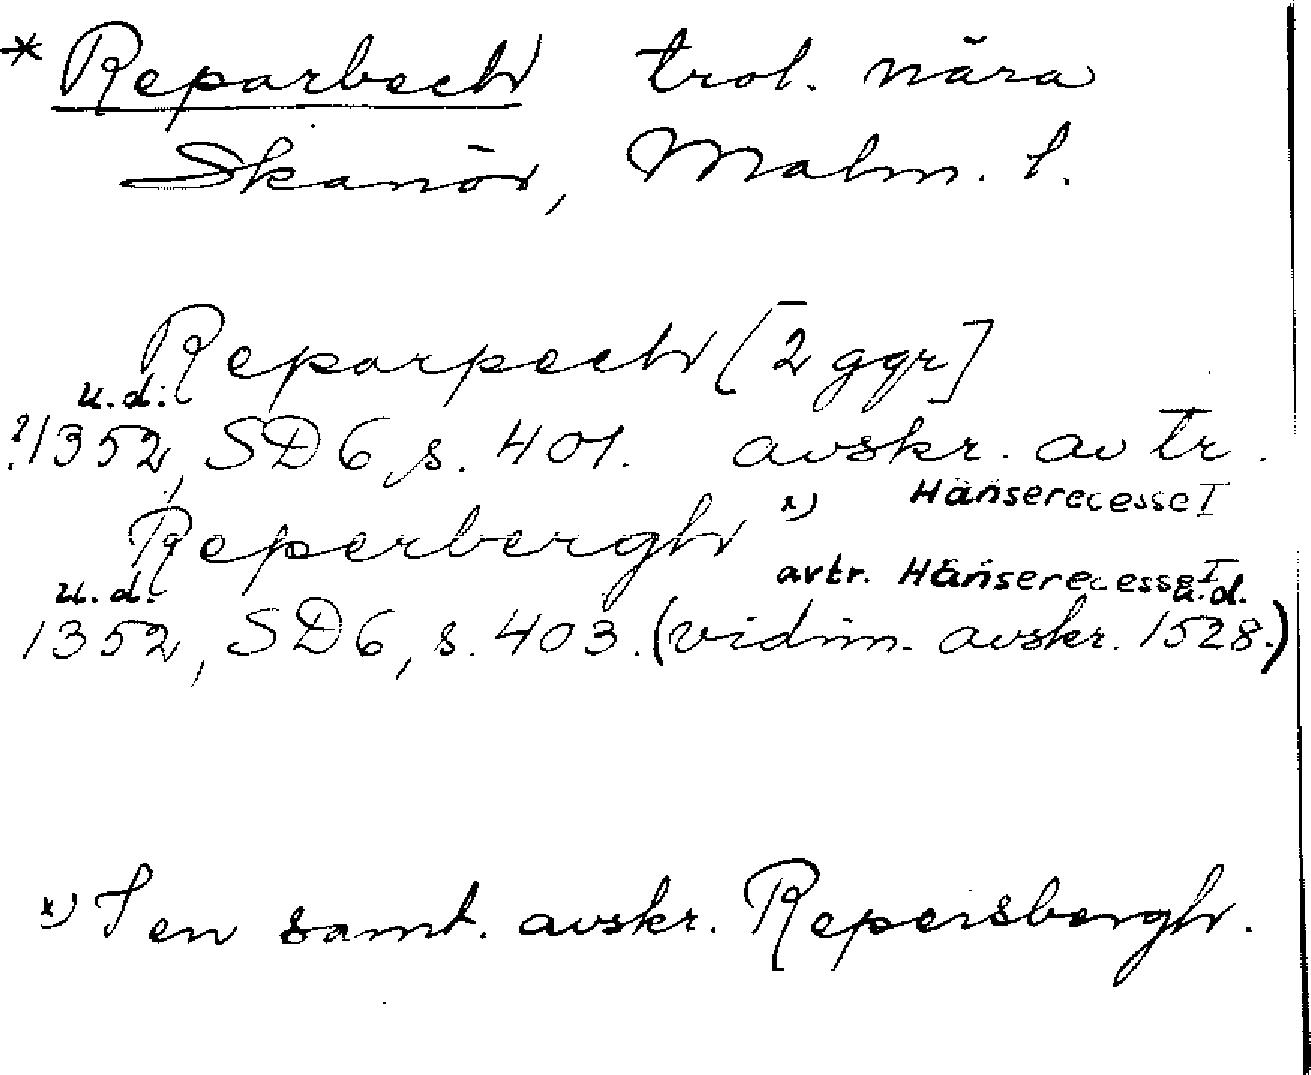 * Reparbech trol. nära
Skanör, Malm. l.
Reparpech [2 ggr]
u.d.
?1352, SD 6, s. 401. avskr. av tr.
Hanserecesse I
Reperbergh x)
avtr. Hanserecesse I
u.d. u.d.
1352, SD 6, s. 403. (vidim. avskr. 1528.)
x) I en samt. avskr. Repersbergh.